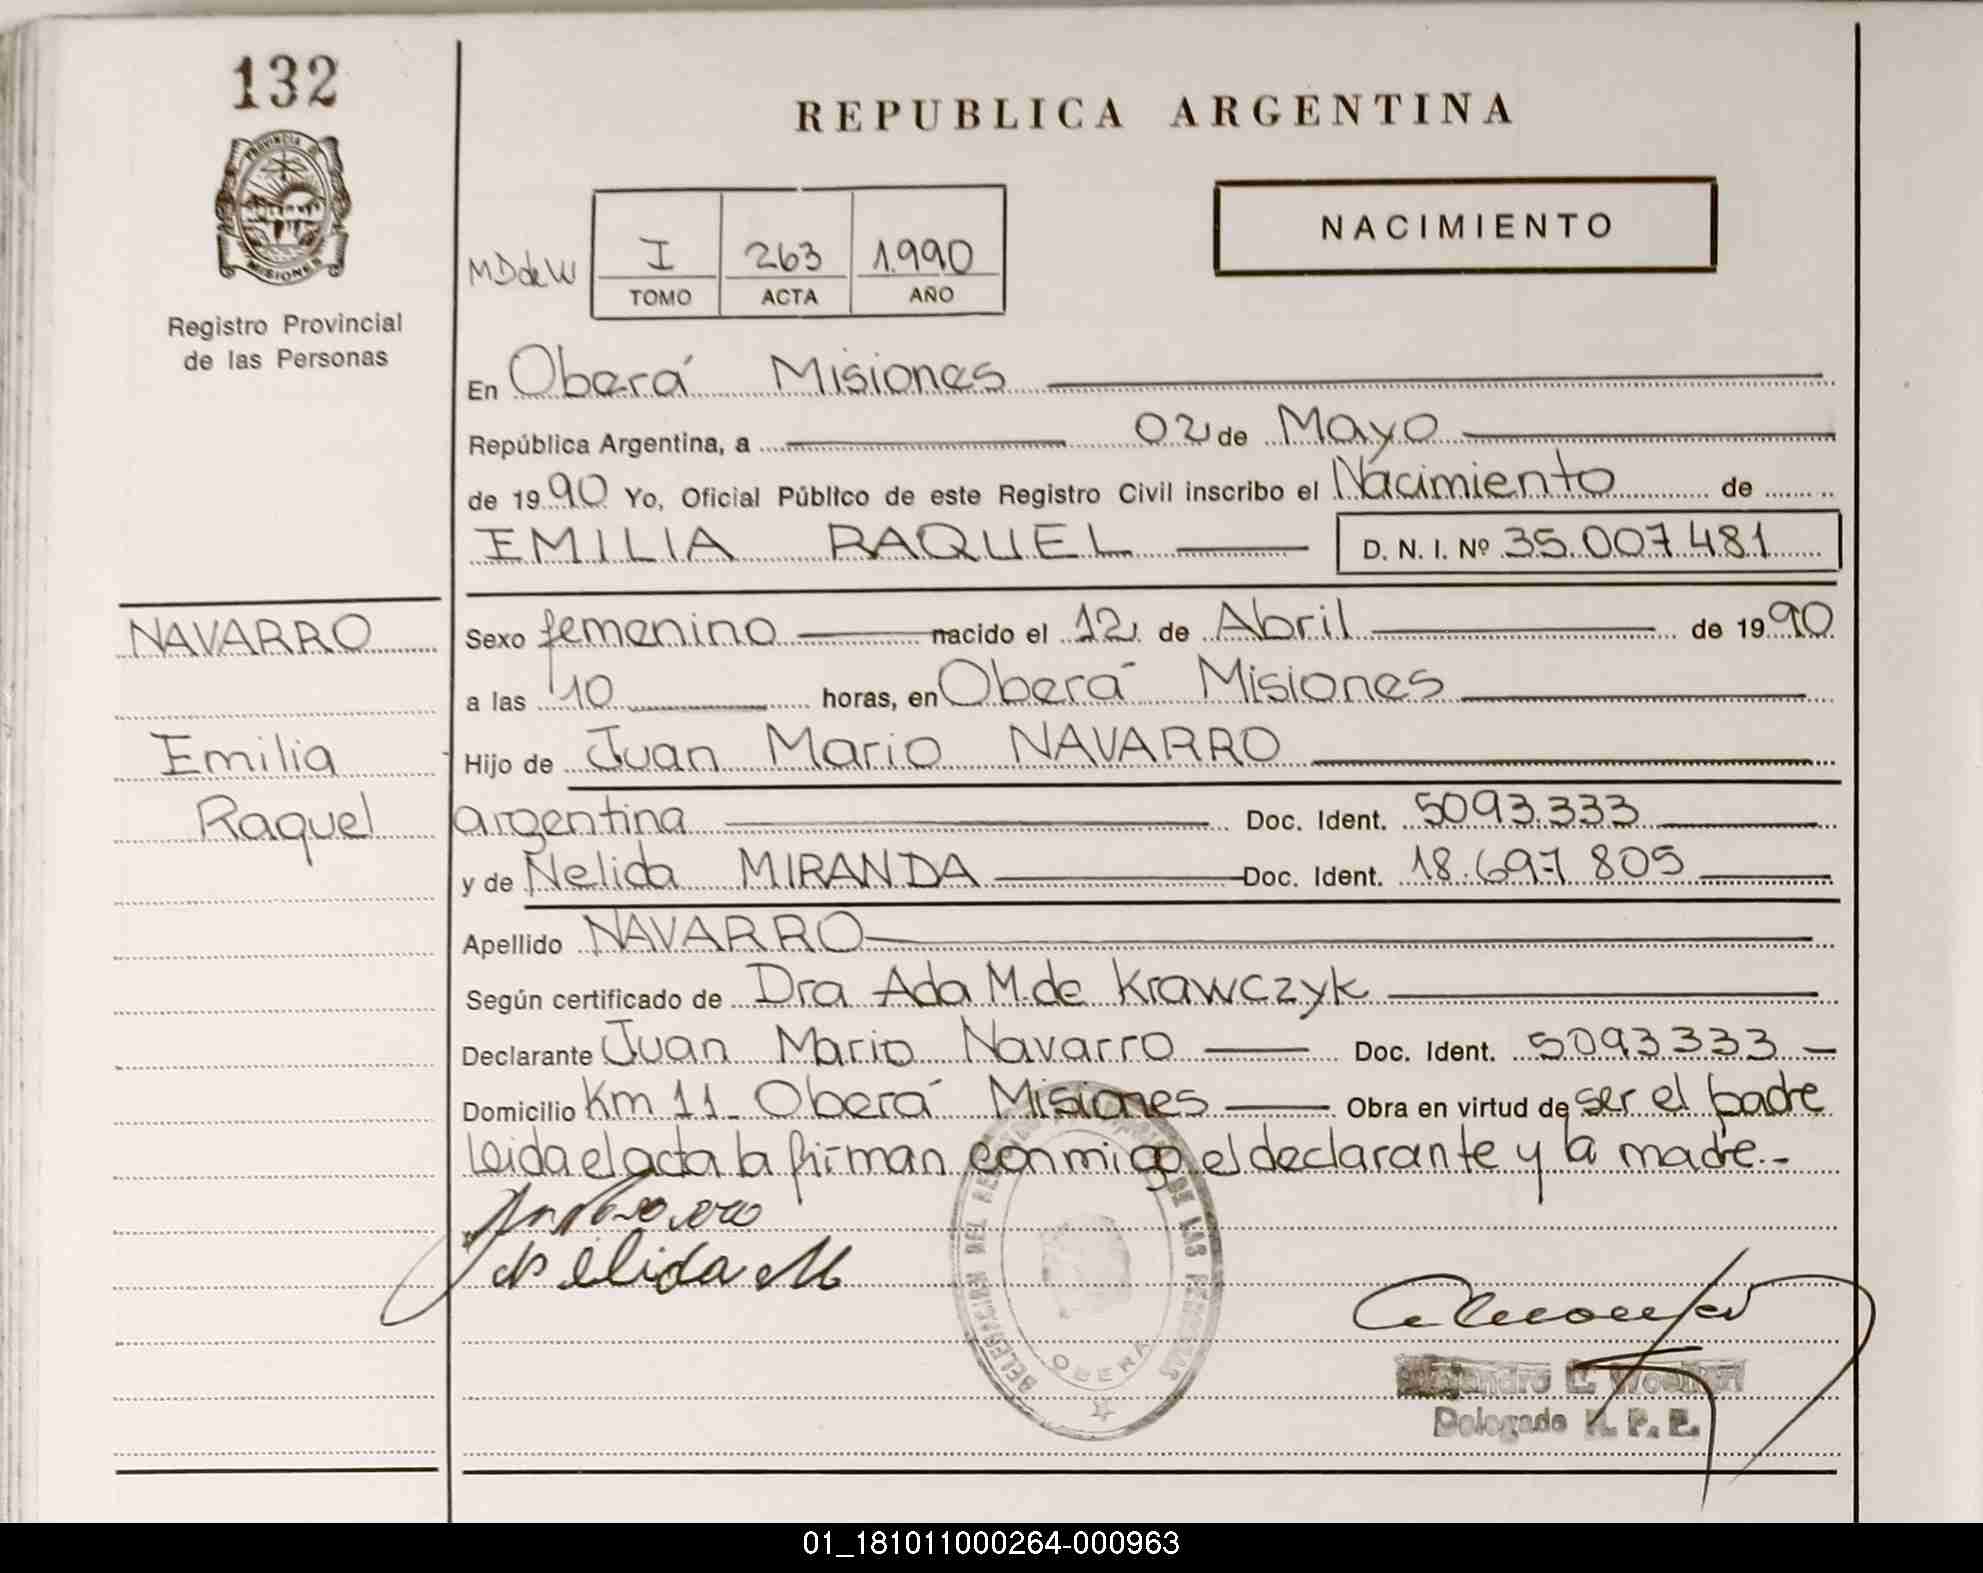 132
REPUBLICA ARGENTINA
PROVINCIA DE
MISIONES
Registro Provincial
de las Personas
NACIMIENTO
MD de W
I 263 1.990
TOMO ACTA AÑO
En Oberá Misiones
República Argentina, a 02 de Mayo
de 1990 Yo, Oficial Público de este Registro Civil inscribo el Nacimiento de
EMILIA RAQUEL D. N. I. Nº 35.007.481
NAVARRO
Emilia
Raquel
Sexo femenino nacido el 12 de Abril de 1990
a las 10 horas, en Oberá Misiones
Hijo de Juan Mario NAVARRO
argentina Doc. Ident. 5093.333
y de Nelida MIRANDA Doc. Ident. 18.697.805
Apellido NAVARRO
Según certificado de Dra Ada M. de Krawczyk
Declarante Juan Mario Navarro Doc. Ident. 5093333
Domicilio Km 11 Oberá Misiones Obra en virtud de ser el padre
Leida el acta la firman conmigo el declarante y la madre.-
Nélida M
DELEGACION DEL REGISTRO DE LAS PERSONAS
OBERA
Delegado R. P. P.
01_181011000264-000963